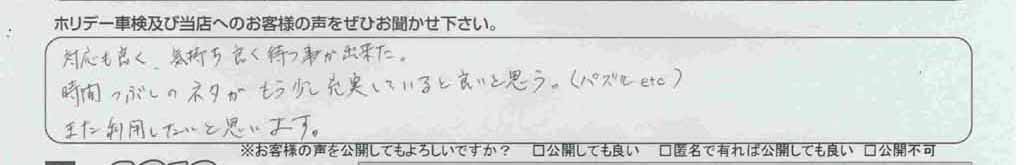 ホリデー車検及び当店へのお客様の声をぜひお聞かせ下さい。
対応も良く、気持ち良く待つ事が出来た。
時間つぶしのネタがもう少し充実していると良いと思う。(パズルetc)
また利用したいと思います。
※お客様の声を公開してもよろしいですか？ □公開しても良い □匿名で有れば公開しても良い □公開不可